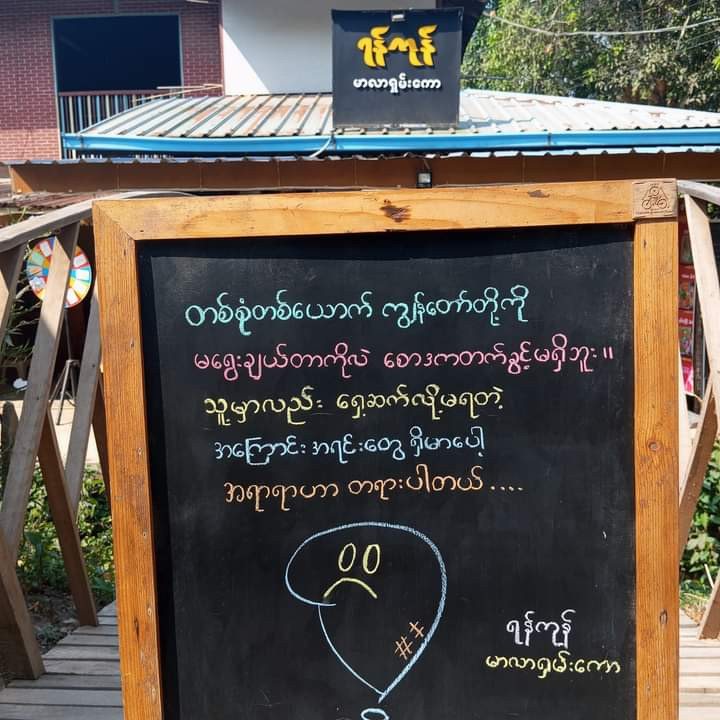 ရန်ကုန်
မာလာရှမ်းကော
တစ်စုံတစ်ယောက် ကျွန်တော်တို့ကို
မရွေးချယ်တာကိုလဲ စောဒကတက်ခွင့်မရှိဘူး။
သူ့မှာလည်း ရှေ့ဆက်လို့မရတဲ့
အကြောင်းအရင်းတွေ ရှိမှာပေါ့
အရာရာဟာ တရားပါတယ်....
ရန်ကုန်
မာလာရှမ်းကော